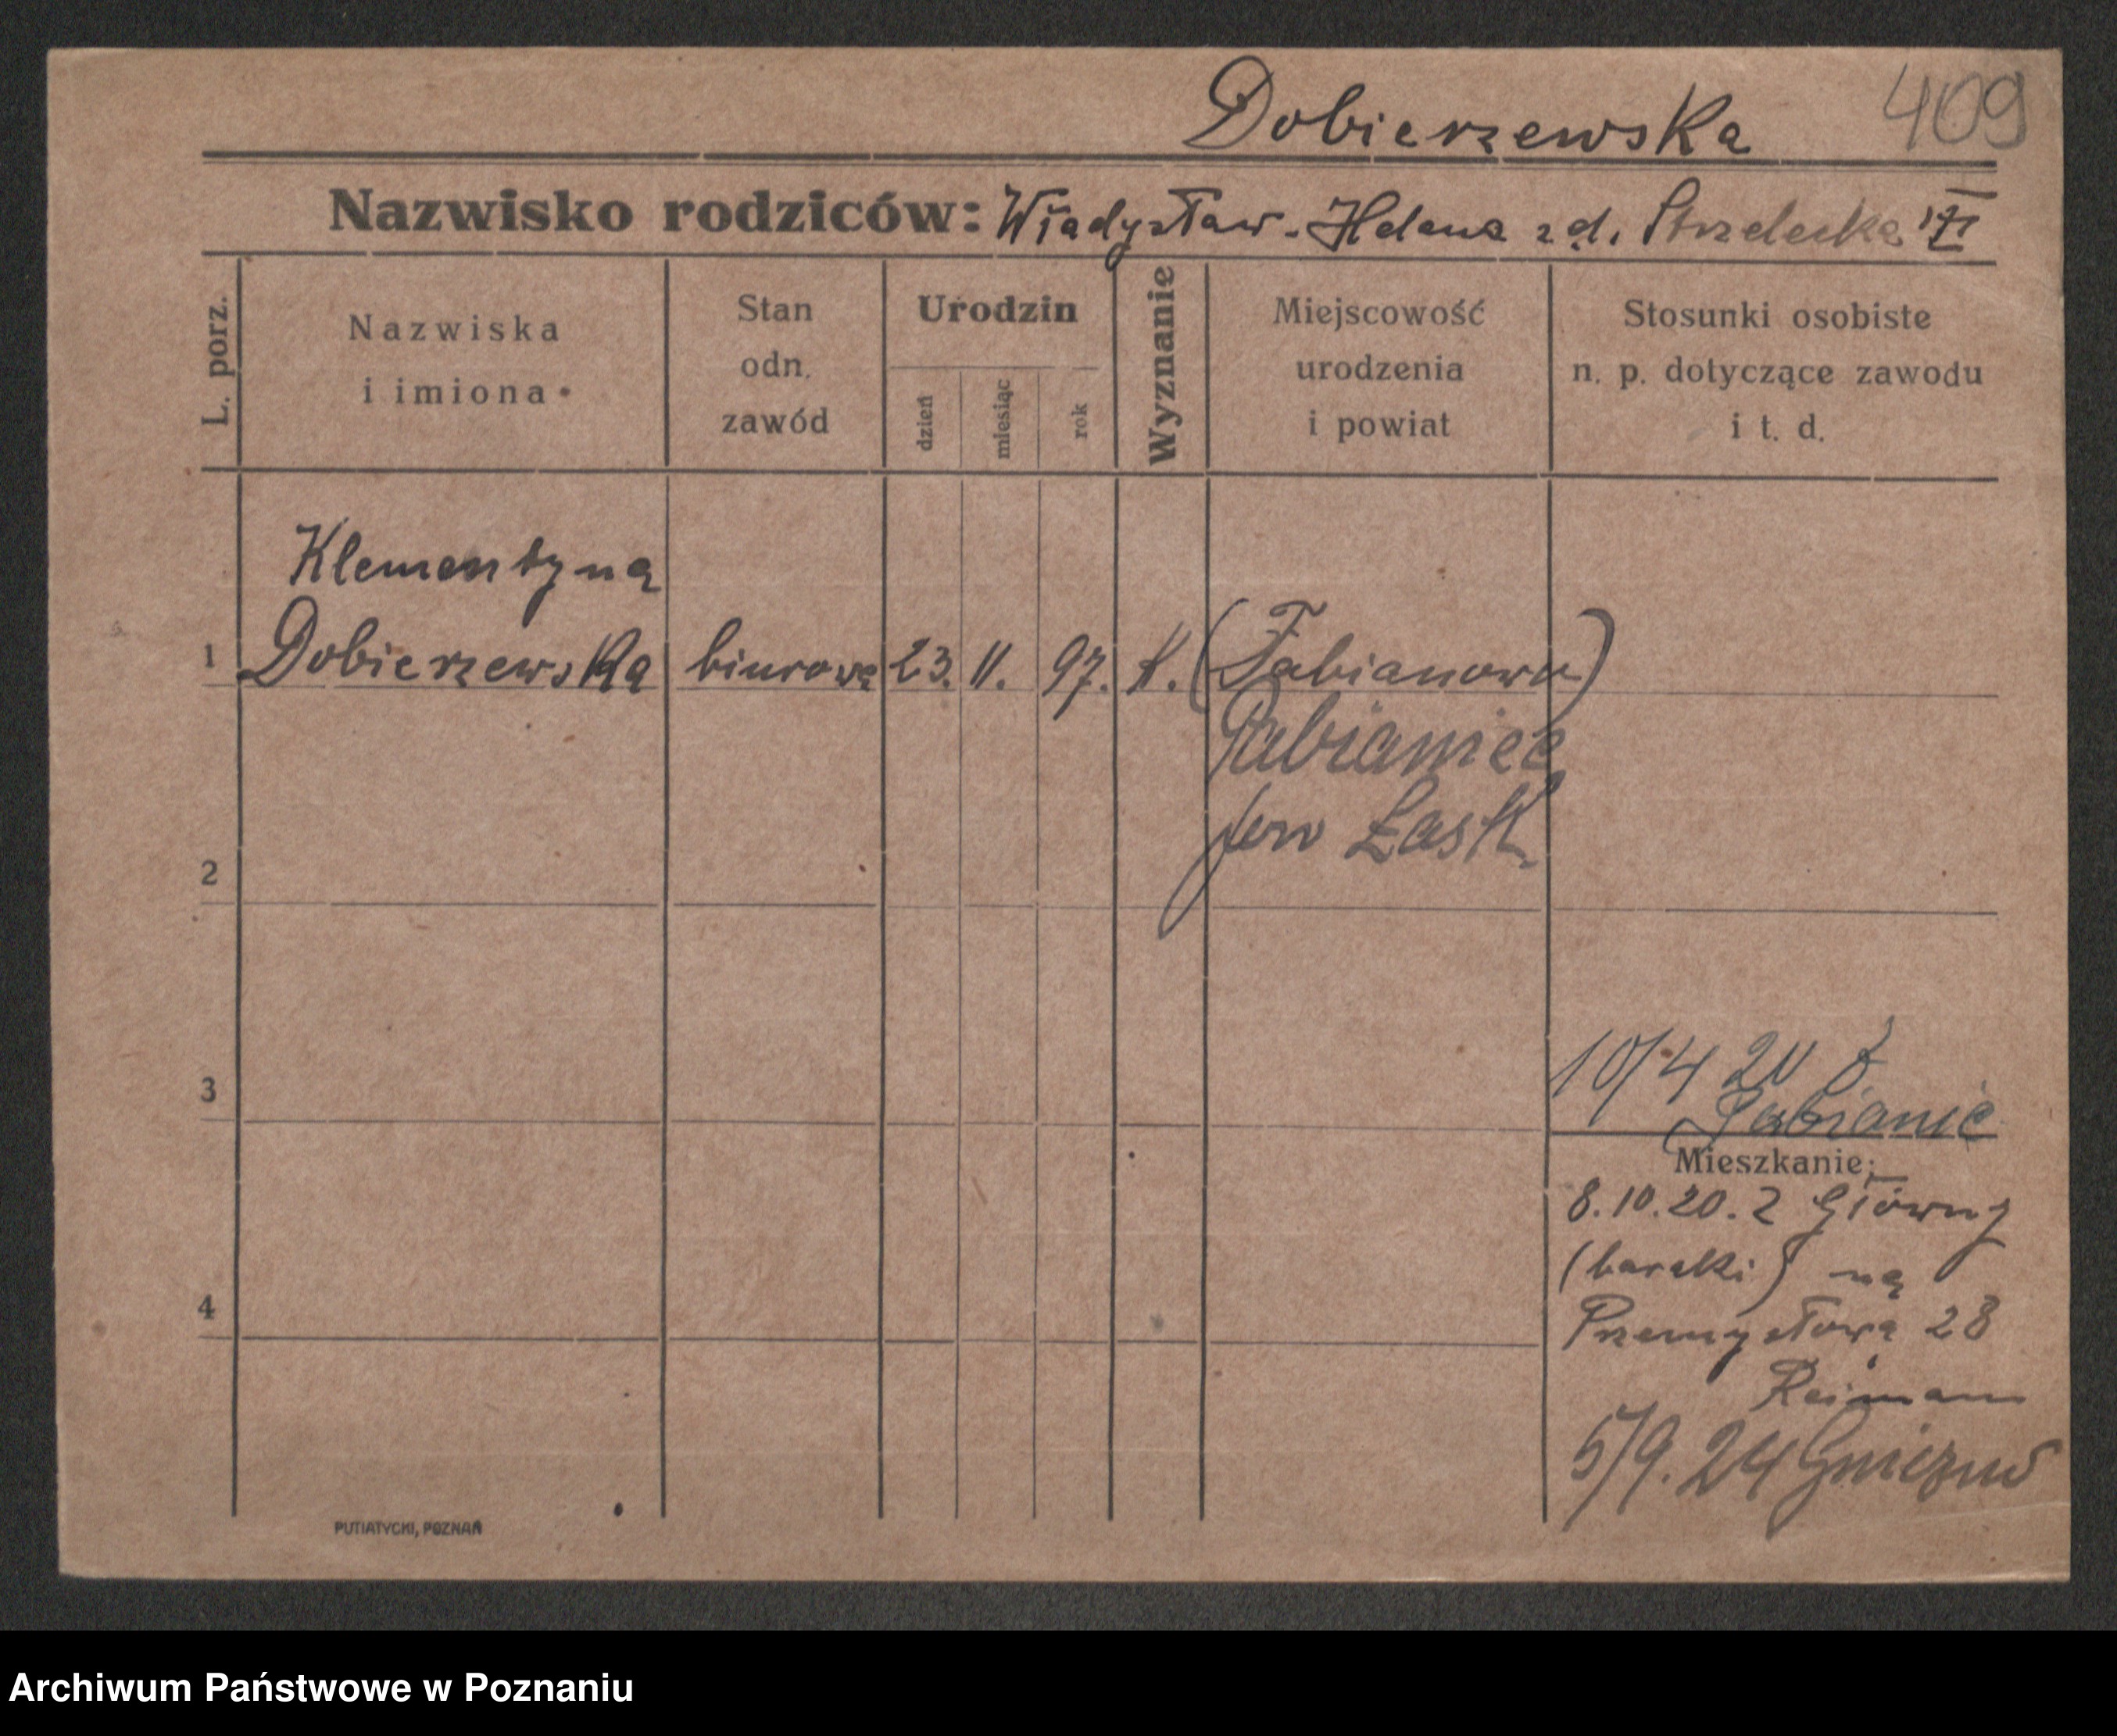 Dobierzewska 409
Nazwisko rodziców: Władysław - Helena z d. Strzelecka VI
L. porz.
Nazwiska
i imiona
Stan
odn.
zawód
Urodzin
dzień
miesiąc
rok
Wyznanie
Miejscowość
urodzenia
i powiat
Stosunki osobiste
n. p. dotyczące zawodu
i t. d.
Klementyna
1 Dobierzewska biurowa 23. 11. 97. K. (Fabianowo)
Pabianice
pow Łask
2
3
10/4 20 z
Pabianic
Mieszkanie:
8.10.20. z Główny
(baraki) na
4
Przemysłowa 28
Reimann
5/9. 24 Gniezno
PUTIATYCKI, POZNAŃ
Archiwum Państwowe w Poznaniu